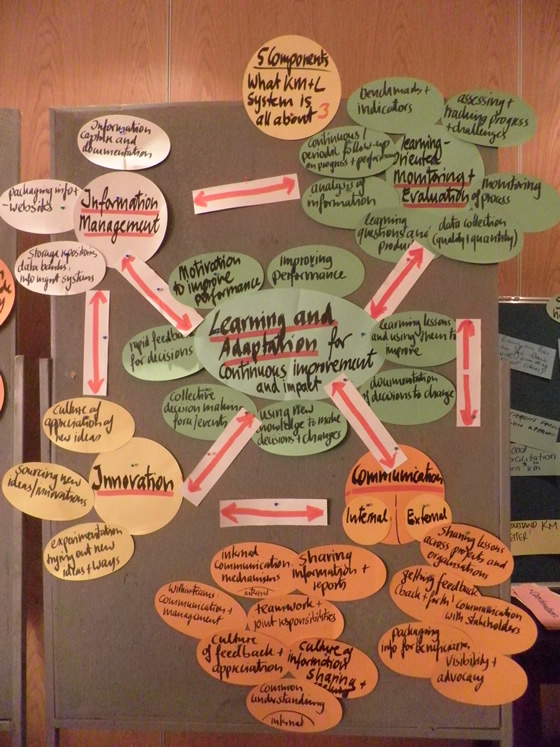 5 Components
What KM+L
System is
all about
3
benchmarks+
indicators
assessing+
tracking progress
+challenges
continuous/
on progress+
analysis of
information
learning-
Oriented
Monitoring+
Evaluation
monitoring
of process
learning
questions and
data collection
(quality+quantity)
Information
capture and
documentation
packaging info+
-websites
Information
Management
Storage repositories
data banks,
info mgmt systems
Motivation
to improve
performance
improving
performance
rapid feedback
for decisions
Learning and
Adaptation for
Continuous improvement
and impact
learning lessons
and using them to
improve
collective
decision making
fora/events
using new
knowledge to make
decisions+changes
documentation
of decisions to change
culture of
appreciation of
new ideas
Sourcing new
ideas/innovations
Innovation
experimentation
trying out new
ideas+ways
Communication
Internal
External
internal
communication
mechanisms
Sharing
information+
reports
internal
within teams
communication+
management
teamwork+
joint responsibilities
culture
of feedback+
appreciation
culture of
information
sharing+
common
understanding
internal
Sharing lessons
across projects and
organisations
getting feedback
(back+forth)
Communication
with stakeholders
packaging
info for beneficiaries
Visibility+
advocacy